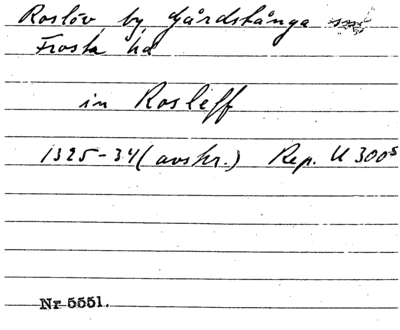 Roslöv by Gårdstånga sn
Frosta hd
in Rosleff
1325-34 (avskr.) Rep. U 300⁵
Nr 5551.